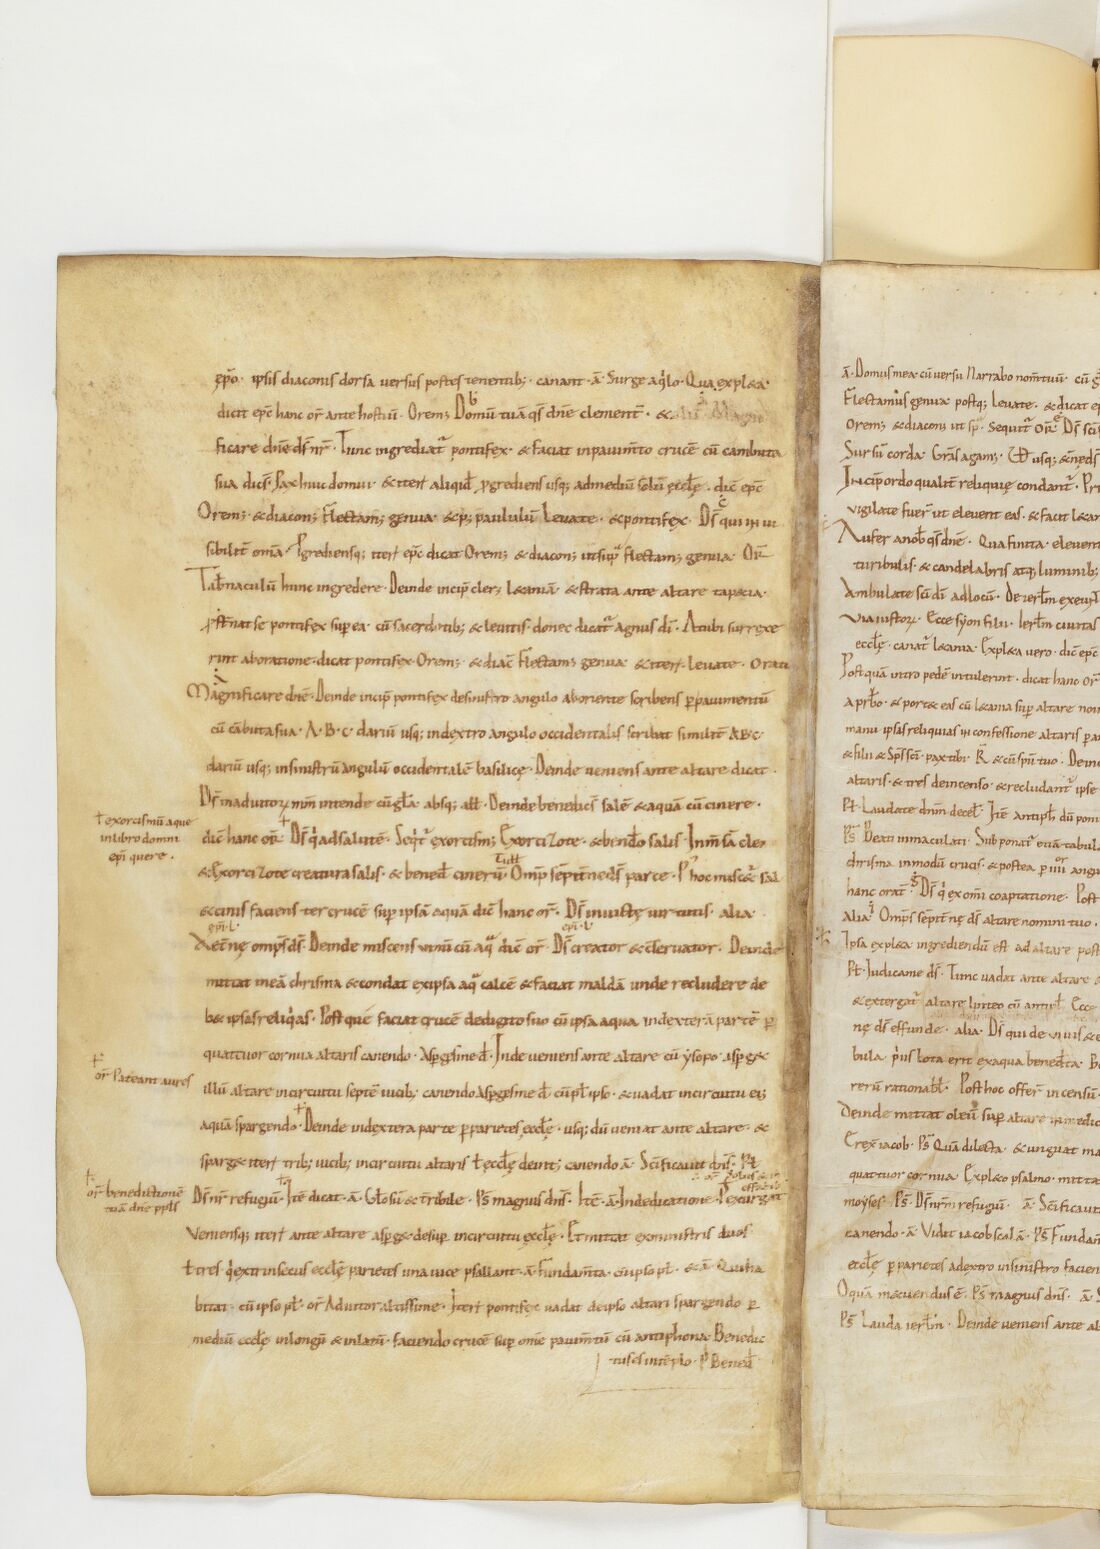 ep̄o· ipsis diaconis dorsa versus postes tenentib; · canant · ā· Surge aq̓lo· Qua expl&a·
dicit ep̄c hanc or̄ ante hostiū· Orem; Domū tuā q̄s dn̄e clement̄ · &
ficare dn̄e d̄s nr̄ · Tunc ingrediat᷑ pontifex · & faciat in pauim̄to crucē cū cambuta
sua dicēs· Pax huic domui · & iter̄ aliquid̄ p̱grediens usq; ad mediū solū eccl̄ę · dic̄ ep̄c
Orem; · & diacon; Flectam; genua · & p; paululū Leuate · & pontifex · D̄s qui inui
sibilit̄ om̄a · P̱grediensq; iter̄ ep̄c dicat Orem; & diacon; ut sup᷑ Flectam; genua · Or̄
Tab̄naculū hunc ingredere · Deinde incip̄ cler; l&aniā · & strata ante altare tap&ia·
p̱st̄nat se pontifex sup̱ ea· cū sacerdotib; & leuitis · donec dicat᷑ agnus dī · At ubi surrexe
rint ab oratione · dicat pontifex · Orem; · & diac̄ Flectam; genua · & iter̄ · leuate · Orati
Magnificare dn̄e · Deinde incip̄ pontifex de sinistro angulo ab oriente scribens p̱ pauimentū
cū cābuta sua · A · B · C · dariū usq; in dextro angulo occidentalis scribat similit̄ A·B·C·
dariū usq; in sinistrū angulū occidentalē basilicę · Deinde ueniens ante altare dicat ·
D̄s in adiutoriū m̄m intende cū gl̄a · absq; all̄ · Deinde benedicēs salē & aquā cū cinere ·
† exorcismū aque
in libro domni
ep̄i quere ·
dic̄ hanc or̄ D̄s q̓ ad salutē · Seqr̓t᷑ exorcism; Exorcizo te · & bened̄o salis · Inm̄sā clem̄
& Exorcizo te creatura salis · & bened̄ cinerū Om̄ps sempit̄ne d̄s parce · P̱ hoc misceat᷑ sal
& cinis faciens ter crucē sup̱ ipsā aquā dic̄ hanc or̄ · D̄s inuictę uirtutis · alia ·
Aet̄nę om̄ps d̄s · Deinde miscens uinū cū aq̓ dic̄ or̄ · D̄s creator & c̄seruator · Deinde
mittat in eā chrisma & condat ex ipsa aq̓ calcē & faciat maldā unde recludere de
b& ipsas reliq̓as · Post quę faciat crucē de digito suo cū ipsa aqua in dexterā partē p̱
quattuor cornua altaris canendo · Asp̱ges me d̄ · Inde ueniens ante altare cū ysopo · asp̱g&
† or̄ Pateant aures
illū altare in circuitu septē uicib; · canendo Asp̱ges me d̄ cū ps̄l ipso · & uadat in circuitu ei;
aquā spargendo · Deinde in dextera parte p̱ parietes eccl̄ę · usq; dū ueniat ante altare · &
sparg& iter̄ trib; uicib; in circuitu altaris ł eccl̄ę deint; canendo ā · Sc̄ificauit dn̄s · Ps̄l
† or̄ benedictionē
tuā dn̄e pp̄ls
D̄s nr̄ refugiū · Itē dicat · ā · Gl̄osū & t̄ribile · Ps̄ magnus dn̄s · Itē · ā · In dedicatione · P̱ exurgat
Veniensq; iter̄ ante altare asp̱g& desup̱ in circuitu eccl̄ę · Et mittat ex ministris duos
ł tres q̓ extrinsecus eccl̄ę parietes una uice psallant · ā · Fundam̄ta · cū ipso ps̄l · & ā · Qui ha
bitat · cū ipso ps̄l · or̄ Adiutor altissime · Iter̄ pontifex uadat de ipso altari spargendo p̱
mediū eccl̄ę in longū & in latū · faciendo crucē sup̱ om̄e pauim̄tū cū antiphona Benedic
tus es in tēplo · P̄s Bened̄
ā· Domus mea· cū versu Narrabo nom̄ tuū · cū
Flectamus genua postq; leuate · & dicat
Orem; & diacon; ut sp̄ · Sequit᷑ Or̄ D̄s
Sursū corda · Gr̄as agam; · VD usq;
Incip̄ ordo qualit̄ reliquię condant᷑ ·
vigilate fuer̄ ut eleuent eas · & facit
Aufer a nob̄ q̄s dn̄e · Qua finita ·
turibulis · & candelabris atq; luminib;
Ambulate sc̄i dī ad locū ·
via iustoꝝ · Ecce syon filii · ierl̄m ciuitas
eccl̄ę · canat᷑ l&ania · Expl&a vero · dic̄ ep̄c
Postquā intro pedē intulerint · dicat hanc or̄
a pr̄bo · & port& eas cū l&ania sup̱ altare
manu ipsas reliquias in confessione altaris
& filii & sp̄s sc̄i · pax tibi · R̄ & cū spū tuo ·
altaris · & tres de incenso · & recludant᷑ ipse
Ps̄l · Laudate dn̄m de cel̄ · Itē Antiph̄ dū
Ps̄ Beati inmaculati · Subponat᷑ etiā
chrisma in modū crucis · & postea p̱ iiii
hanc orat̄ · D̄s q̓ ex om̄i coaptatione ·
Alia Om̄ps sempit̄nę d̄s altare nomini tuo ·
Ipsa expl&a ingrediendū est ad altare
Ps̄l · Iudica me d̄s · Tunc uadat ante altare
& extergat᷑ altare linteo cū antiph̄ · Ecce
nę d̄s effunde · alia · D̄s qui de uiuis
bula p̓us lota erit ex aqua bened̄cta ·
rerū rationab̄l · Post hoc offer̄ incensū ·
Deinde mittat oleū sup̱ altare in medio
Erex̄ iacob · Ps̄ Quā dilecta · & unguat
quattuor cornua · Expl&o psalmo · mittat
moyses · Ps̄ D̄s nr̄m refugiū · ā · Sc̄ificauit
canendo · ā · Vidit iacob scalā · Ps̄
eccl̄ę p̱ parietes a dextro in sinistro
O quā m&uendus ē · Ps̄ magnus dn̄s · ā ·
Ps̄ Lauda ierl̄m · Deinde ueniens ante